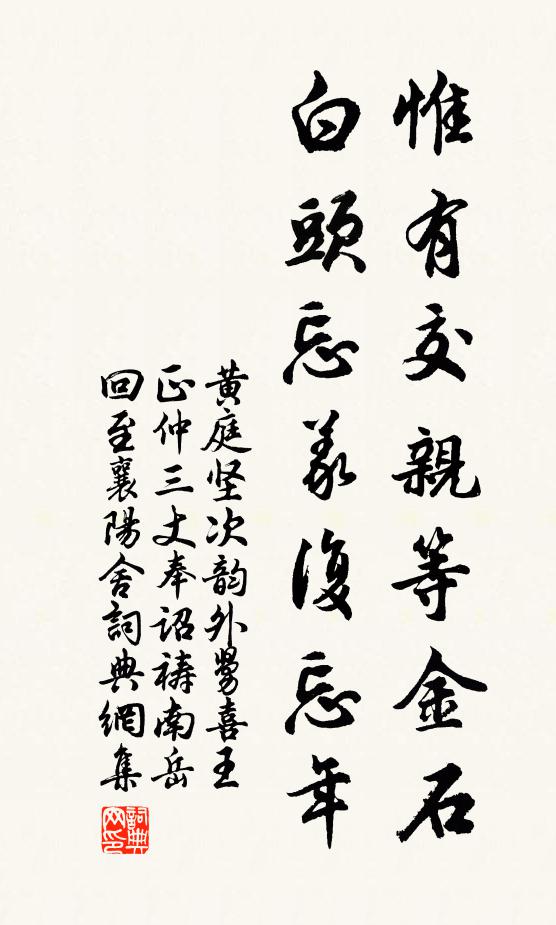 惟有交親等金石
白頭忘義復忘年
黄庭坚次韵外舅喜王
正仲三丈奉诏祷南岳
回至襄陽舍詞典網集
詞典網印